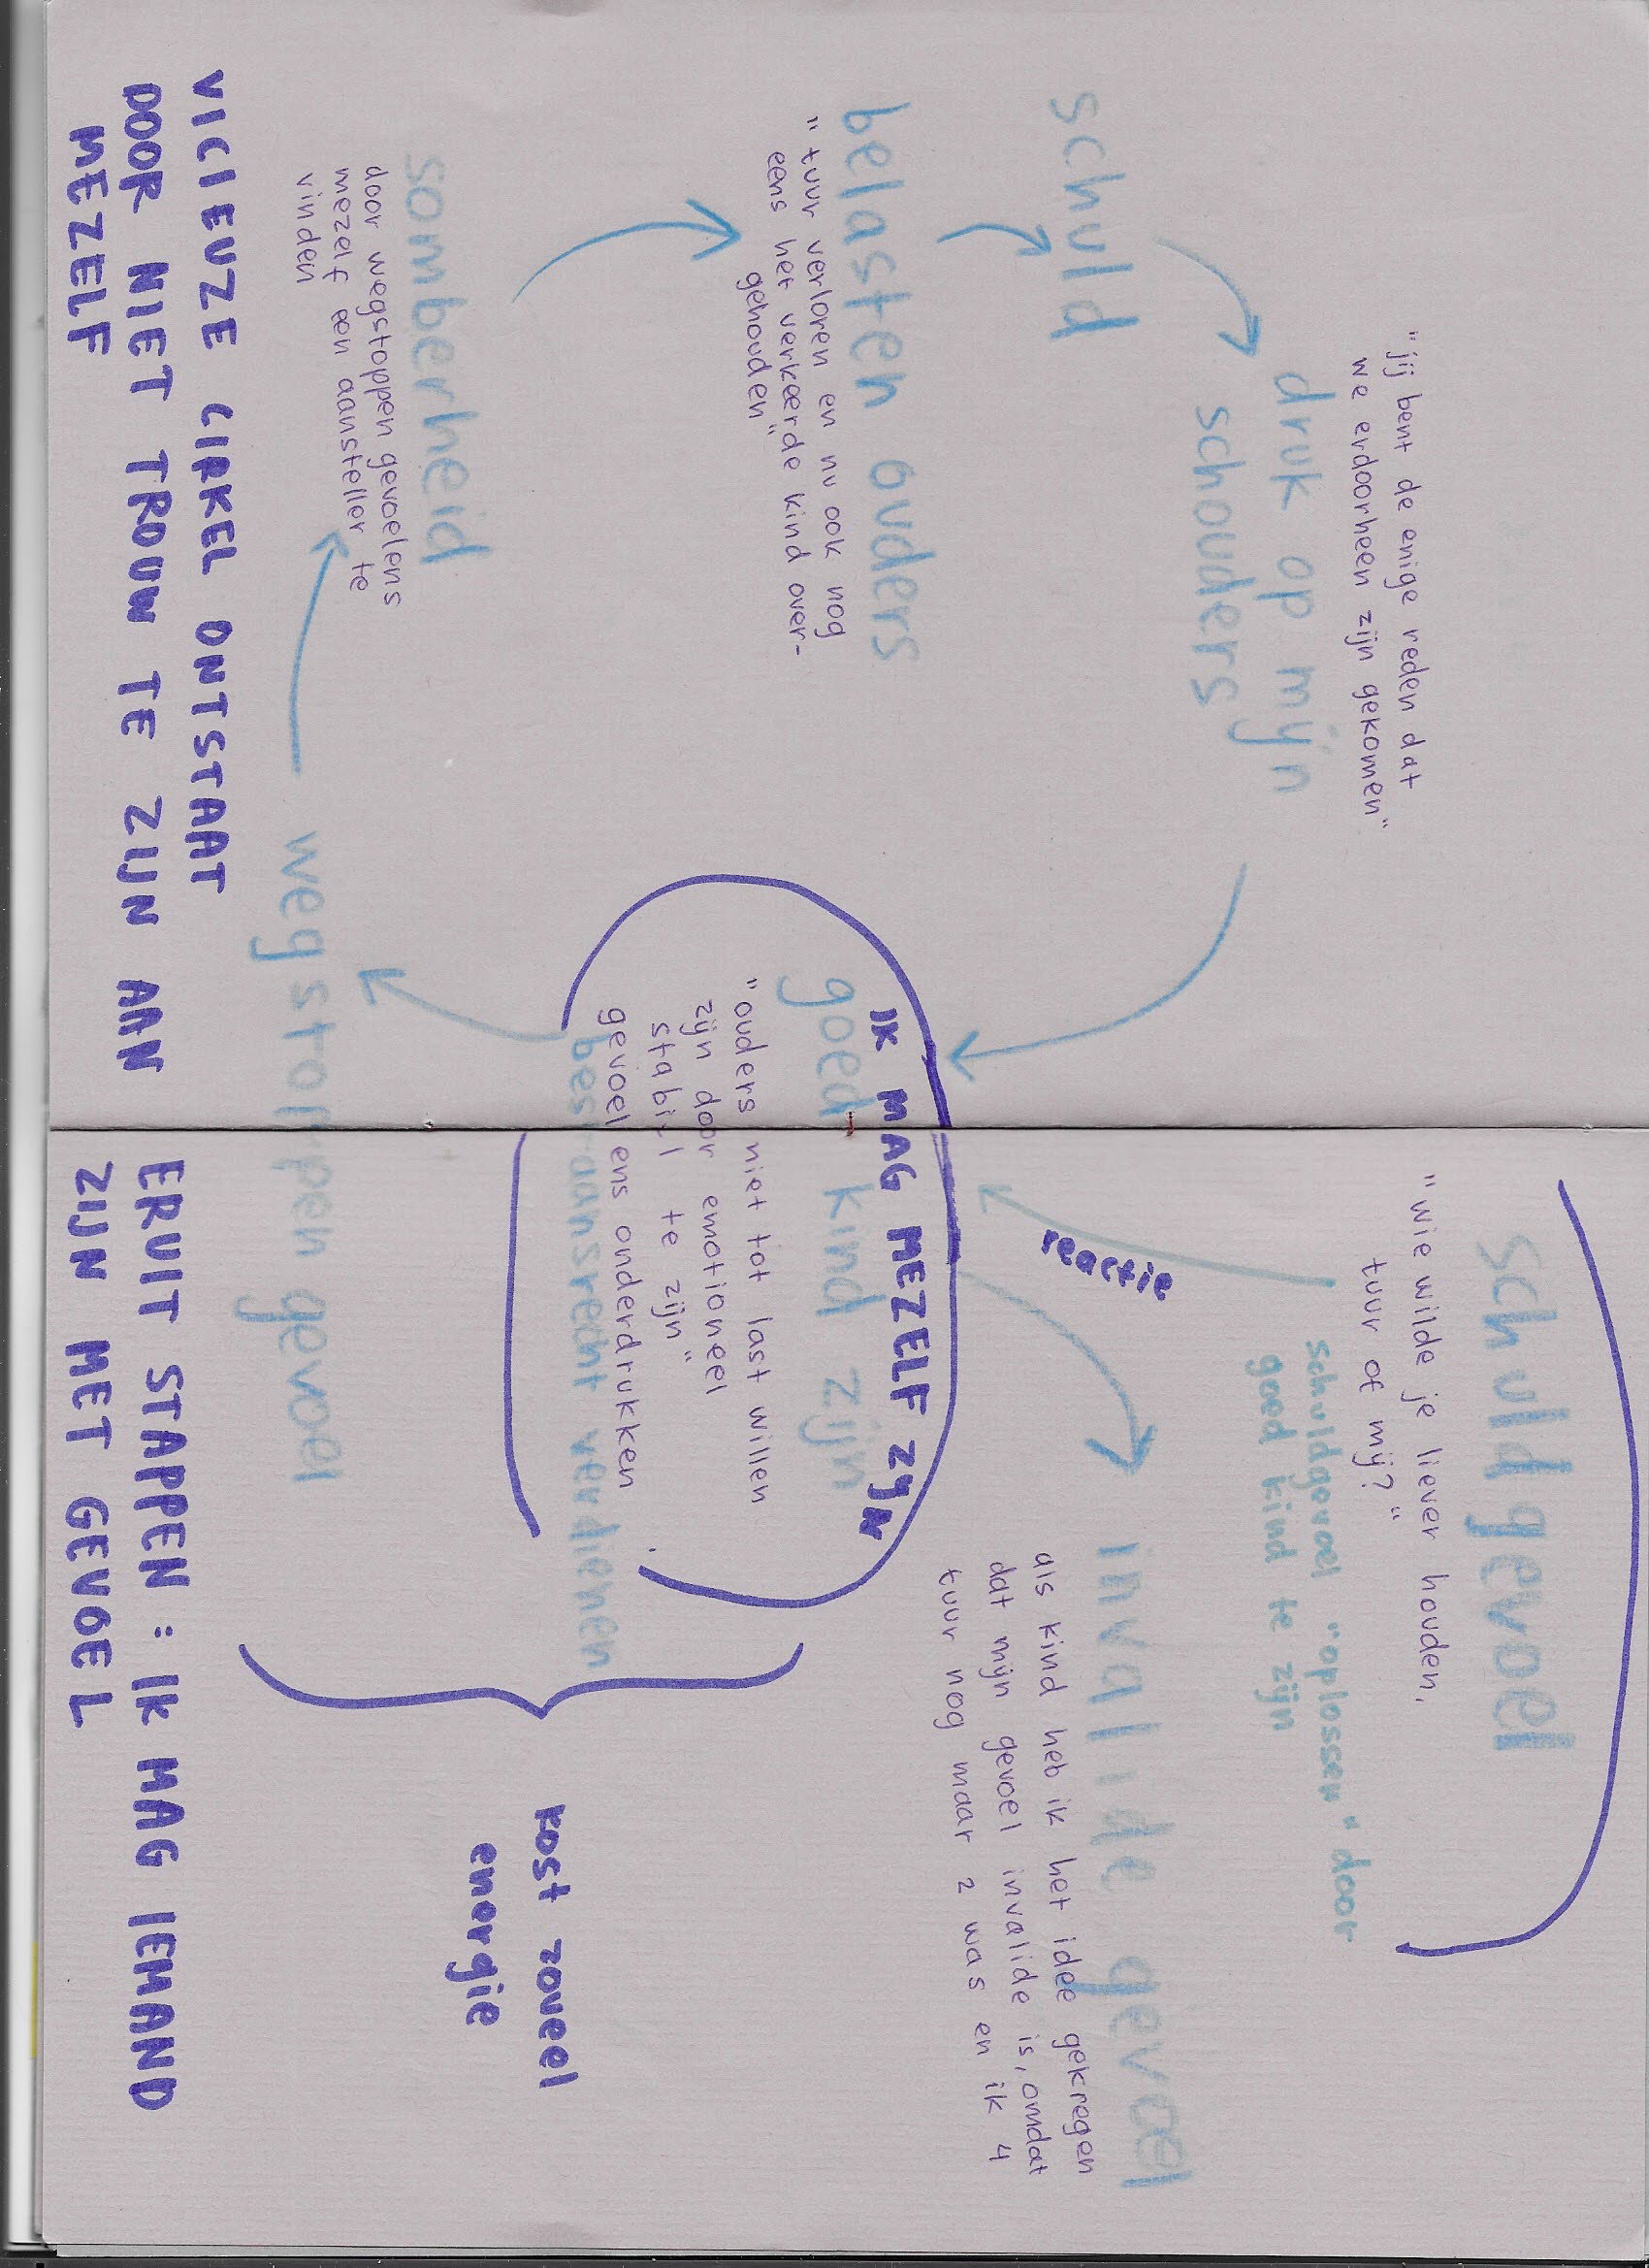 "jij bent de enige reden dat
we erdoorheen zijn gekomen"
druk op mijn
schouders
schuld
belasten ouders
"tuur verloren en nu ook nog
eens het verkeerde kind over-
gehouden"
somberheid
door wegstoppen gevoelens
mezelf een aansteller te
vinden
schuldgevoel
"wie wilde je liever houden,
tuur of mij?"
schuldgevoel "oplossen" door
goed kind te zijn
reactie
invalide gevoel
als kind heb ik het idee gekregen
dat mijn gevoel invalide is, omdat
tuur nog maar 2 was en ik 4
IK MAG MEZELF ZIJN
goed kind zijn
"ouders niet tot last willen
zijn door emotioneel
stabiel te zijn"
gevoelens onderdrukken
bestaansrecht verdienen
kost zoveel
energie
wegstoppen gevoel
VICIEUZE CIRKEL ONTSTAAT
DOOR NIET TROUW TE ZIJN AAN
MEZELF
ERUIT STAPPEN: IK MAG IEMAND
ZIJN MET GEVOEL